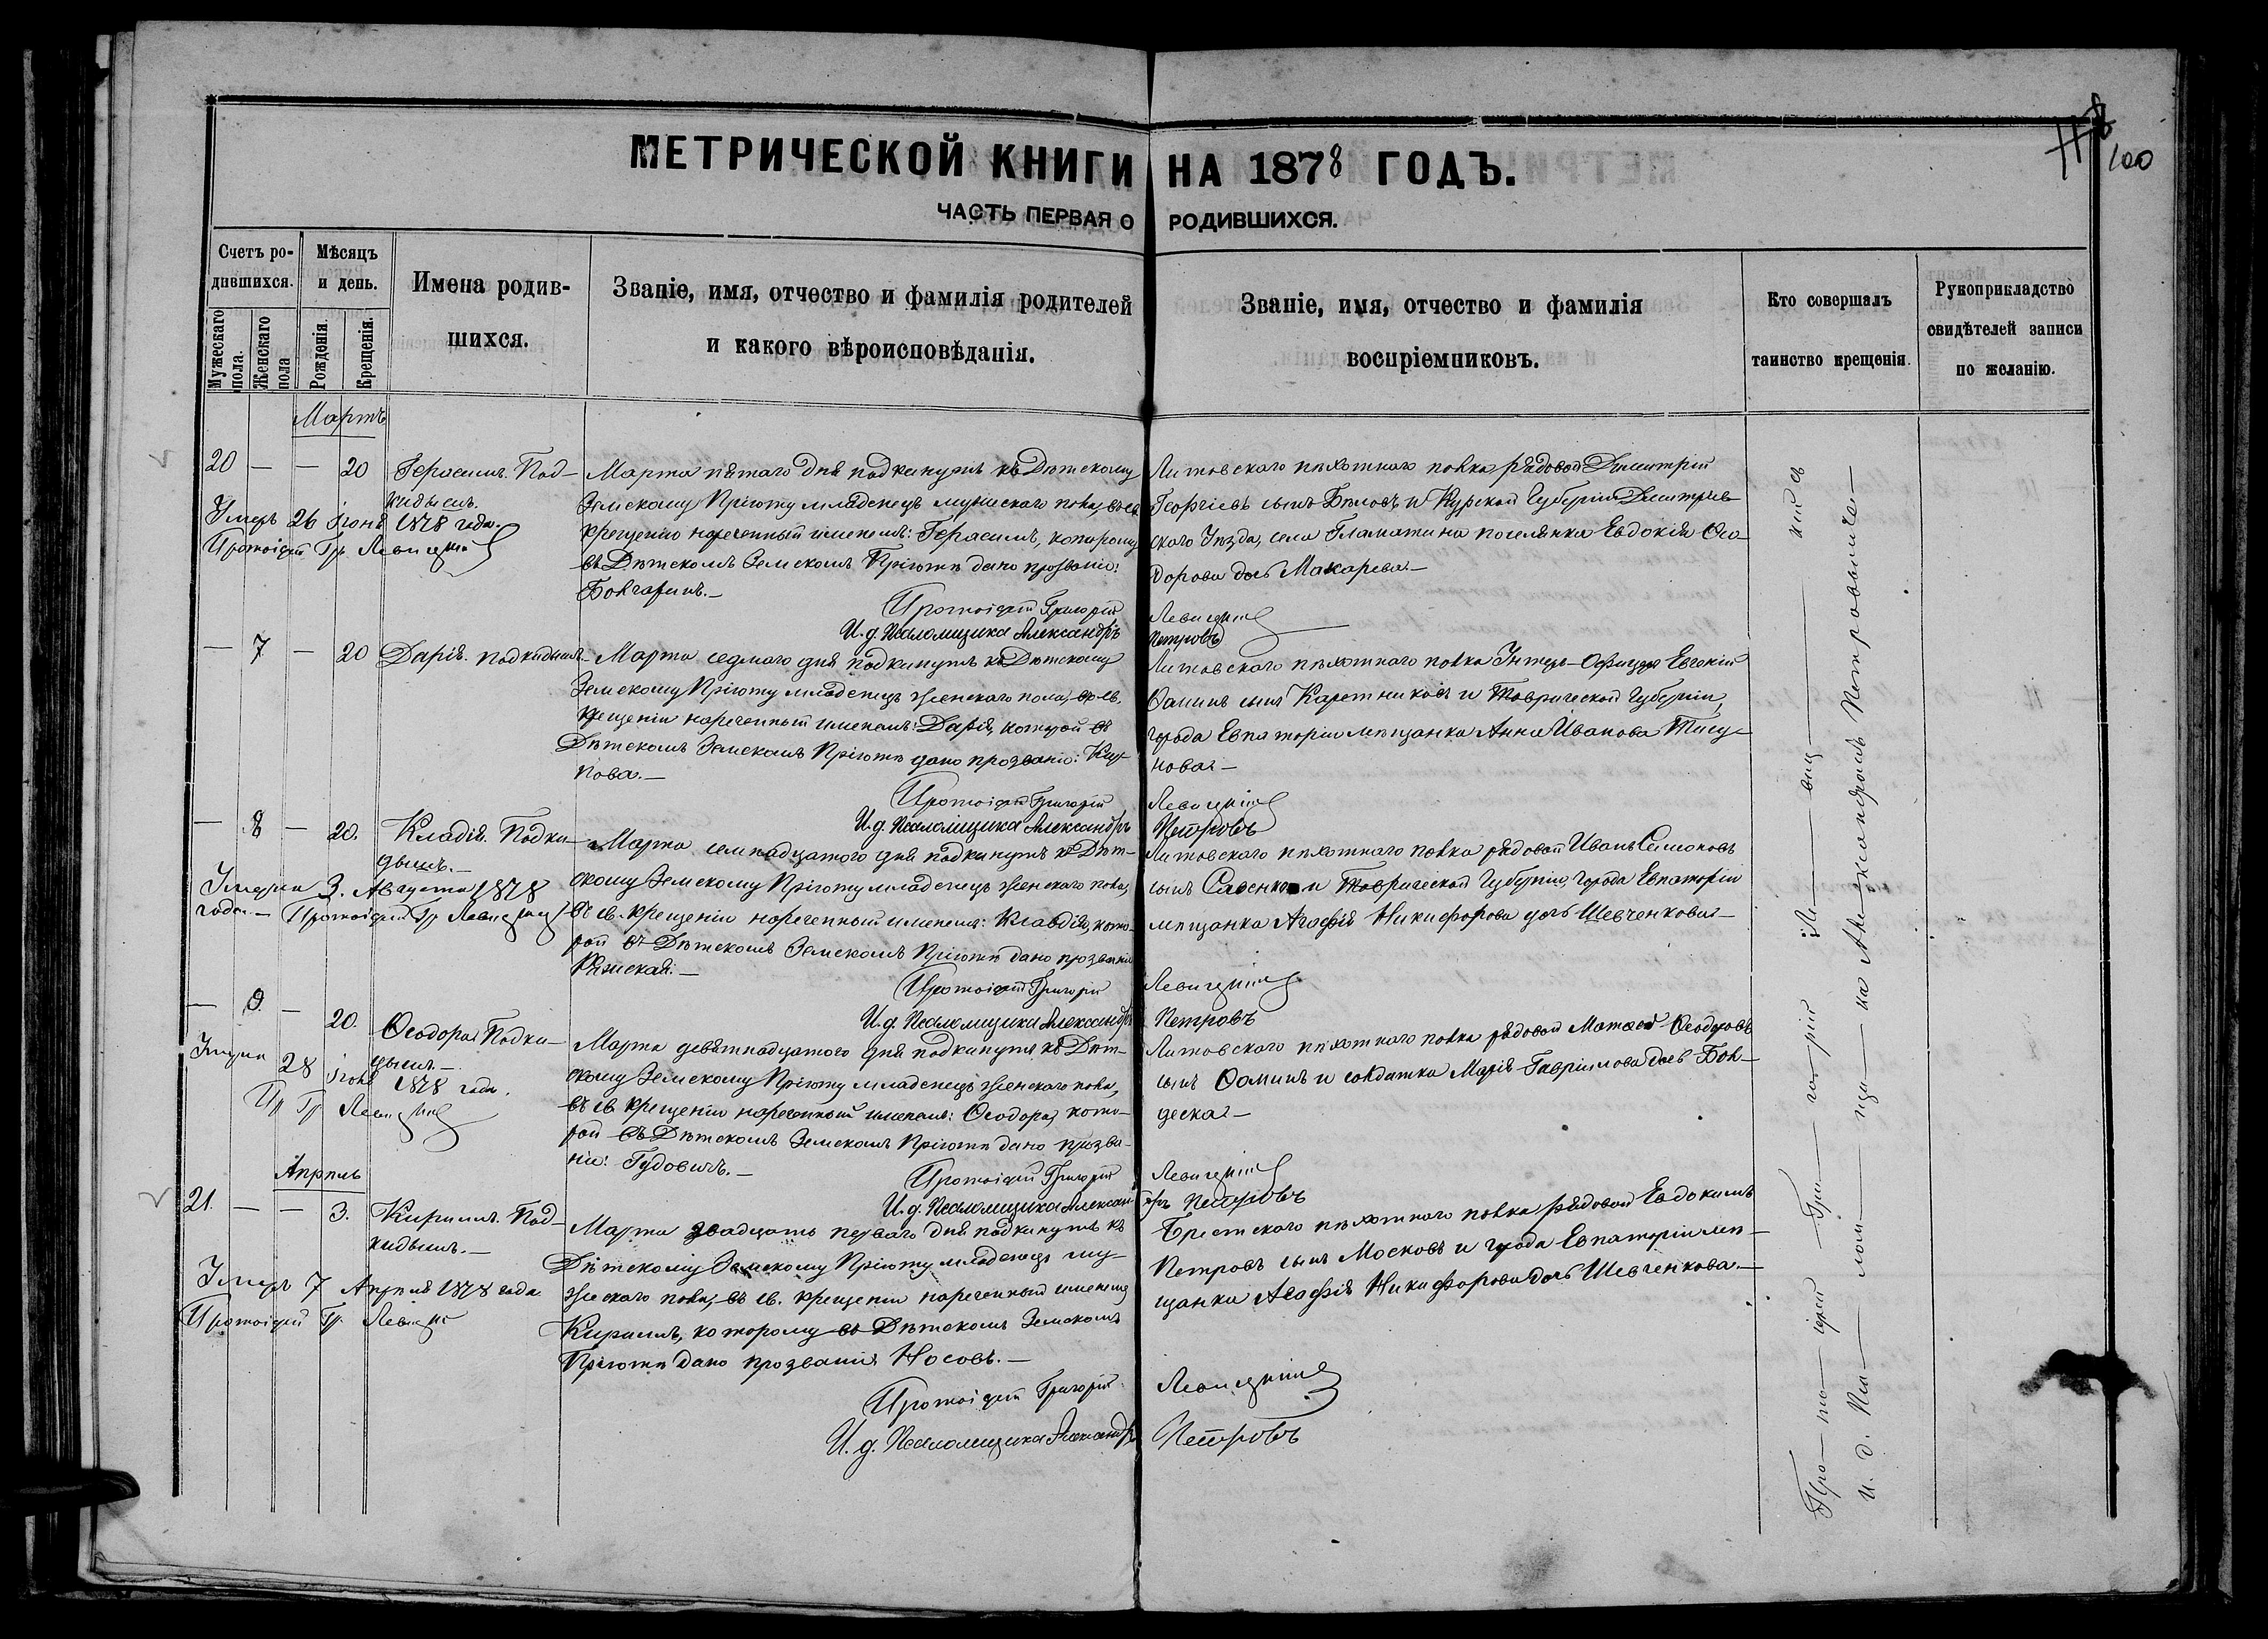 100
МЕТРИЧЕСКОЙ КНИГИ НА 1878 ГОДЪ.
ЧАСТЬ ПЕРВАЯ О РОДИВШИХСЯ.
Счетъ родившихся.
Мужескаго пола.
Женскаго пола
Мѣсяцъ и день.
Рожденія.
Крещенія.
Имена родив-
шихся.
Званіе, имя, отчество и фамилія родителей
и какого вѣроисповѣданія.
Званіе, имя, отчество и фамилія
воспріемниковъ.
Кто совершалъ
таинство крещенія.
Рукоприкладство
свидѣтелей записи
по желанію.
Мартъ
20 — — 20 Герасимъ. Под-
кидышъ.
Умеръ 26 Іюня 1878 года.
Протоіерей Гр. Левицкій
Марта пятаго дня подкинутъ къ Дѣтскому
Земскому Пріюту младенецъ мужескаго пола, въ св.
крещеніи нареченный именемъ: Герасимъ, которому
въ Дѣтскомъ Земскомъ Пріютѣ дано прозваніе:
Болгаринъ.—
Литовскаго пѣхотнаго полка рядовой Димитрій
Георгіевъ сынъ Бѣловъ и Курской Губерніи Дмитріев-
скаго Уѣзда, села поселянка Евдокія Ѳео-
дорова дочь Макарева.—
Протоіерей Григорій Левицкій
И. д. Псаломщика Александръ Петровъ
— 7 — 20 Дарія. Подкидышъ.
Марта седмаго дня подкинутъ къ Дѣтскому
Земскому Пріюту младенецъ женскаго пола, во св.
крещеніи нареченный именемъ: Дарія, которой въ
Дѣтскомъ Земскомъ Пріютѣ дано прозваніе:
Литовскаго пѣхотнаго полка Унтеръ-Офицеръ Евгеній
Ѳоминъ сынъ Каретниковъ и Таврической Губерніи,
города Евпаторіи мѣщанка Анна Иванова
Протоіерей Григорій Левицкій
И. д. Псаломщика Александръ Петровъ
— 8 — 20. Клавдія. Подки-
дышъ.—
Умерла 3. Августа 1878
года.— Протоіерей Гр. Левицкій
Марта семнадцатого дня подкинутъ къ Дѣт-
скому Земскому Пріюту младенецъ женскаго пола,
въ св. крещеніи нареченный именемъ: Клавдія, кото-
рой въ Дѣтскомъ Земскомъ Пріютѣ дано прозваніе
Ряжская.—
Литовскаго пѣхотнаго полка рядовой Иванъ Симоновъ
сынъ Савенко и Таврической Губерніи, города Евпаторіи
мѣщанка Агафія Никифорова дочь Шевченкова.—
Протоіерей Григорій Левицкій
И. д. Псаломщика Александръ Петровъ
— 9. — 20. Ѳеодора Подки-
дышъ.—
Умерла 28 Іюня 1878 года.
Пр Гр Левицкій
Марта девятнадцатого дня подкинутъ къ Дѣт-
скому Земскому Пріюту младенецъ женскаго пола,
въ св крещеніи нареченный именемъ: Ѳеодора, кото-
рой въ Дѣтскомъ Земскомъ Пріютѣ дано прозва-
ніе: Гудовичъ.—
Литовскаго пѣхотнаго полка рядовой Матвей Ѳеодоровъ
сынъ Ѳоминъ и солдатка Марія Гавріилова дочь Бон-
деска.—
Протоіерей Григорій Левицкій
И. д. Псаломщика Александръ Петровъ
Апрѣль
21. — — 3. Кириллъ. Под-
кидышъ.—
Умеръ 7 Апрѣля 1878 года
Протоіерей Гр. Левицкій
Марта двадцать перваго дня подкинутъ къ
Дѣтскому Земскому Пріюту младенецъ му-
жескаго пола, въ св. крещеніи нареченный именемъ
Кириллъ, которому въ Дѣтскомъ Земскомъ
Пріютѣ дано прозваніе Носовъ.—
Брестскаго пѣхотнаго полка рядовой Евдокимъ
Петровъ сынъ Московъ и города Евпаторіи мѣ-
щанка Агафія Никифорова дочь Шевченкова.—
Протоіерей Григорій Левицкій
И. д. Псаломщика Александръ Петровъ
Про—то—іерей—Гри—горій—Ле—виц—кій съ
и. д. Пса—лом—щи—ка Александромъ Петровымъ.—